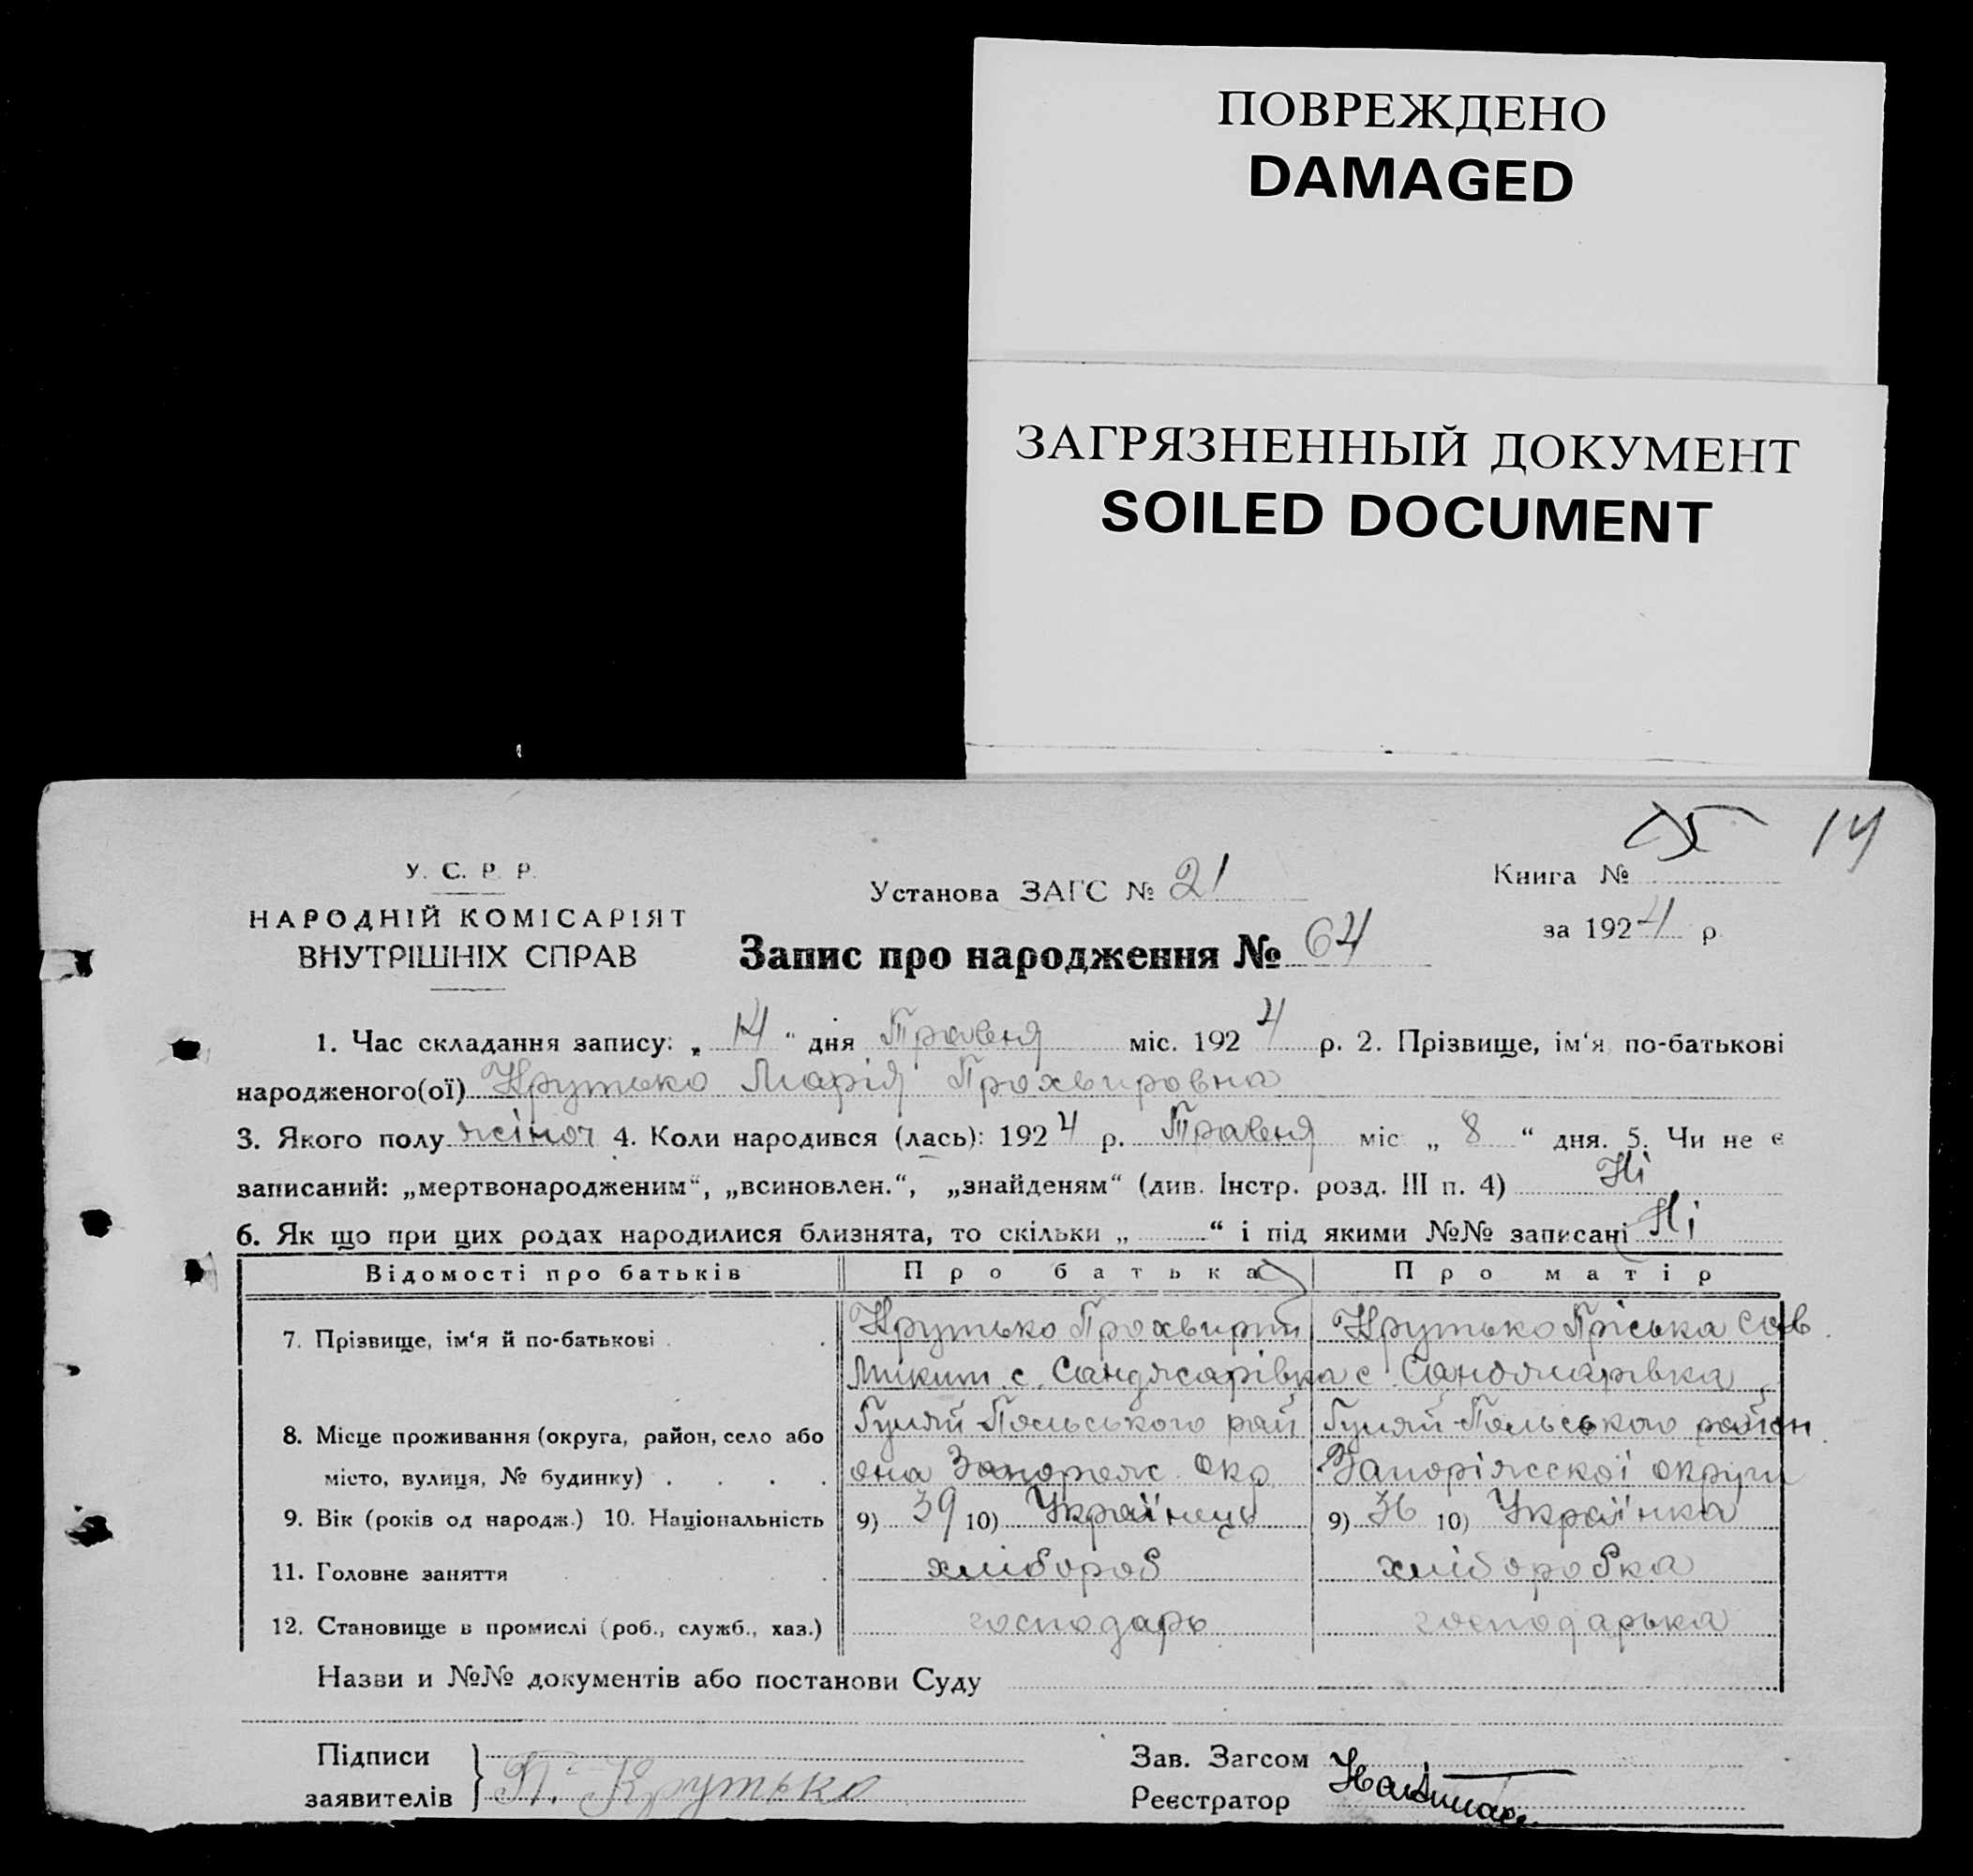 ПОВРЕЖДЕНО
DAMAGED
ЗАГРЯЗНЕННЫЙ ДОКУМЕНТ
SOILED DOCUMENT
14
У. С. Р. Р.
НАРОДНІЙ КОМІСАРІЯТ
ВНУТРІШНІХ СПРАВ
Установа ЗАГС № 21
Книга №
за 1924 р.
Запис про народження № 64
1. Час складання запису: „ 14 “ дня Травня міс. 1924 р. 2. Прізвище, ім‘я, по-батькові
народженого(ої) Крутько Марія Прохвировна
3. Якого полу жіноч 4. Коли народився (лась): 1924 р. Травня міс „ 8 “ дня. 5. Чи не є
записаний: „мертвонародженим“, „всиновлен.“, „знайденям“ (див. Інстр. розд. III п. 4) Ні
6. Як що при цих родах народилися близнята, то скільки „ “ і під якими №№ записані Ні
Відомості про батьків Про батька Про матір
7. Прізвище, ім‘я й по-батькові . . . Крутько Прохвирий Крутько Пріська Сав.
Микит с. Санджарівка с Санджарівка
8. Місце проживання (округа, район, село або Гуляй-Польського рай Гуляй-Польського район
місто, вулиця, № будинку) . . . . она Запорож. Окр. Запоріжскої округи
9. Вік (років од народж.) 10. Національність 9) 39 10) Українець 9) 36 10) Українка
11. Головне заняття хлібороб хліборобка
12. Становище в промислі (роб., служб., хаз.) господарь господарька
Назви и №№ документів або постанови Суду
Підписи
заявителів П. Крутько
Зав. Загсом
Реєстратор